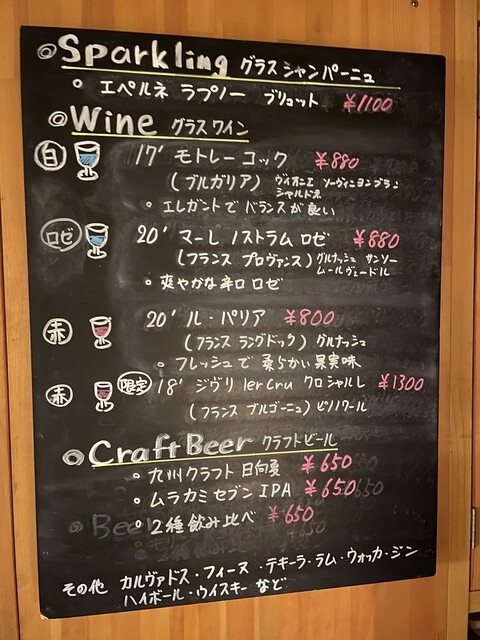 ◎Sparkling グラスシャンパーニュ
◦ エペルネ ラプノー ブリュット ¥1100
◎Wine グラスワイン
白 17' モトレーコック ¥880
(ブルガリア) ヴィオニエ ソーヴィニヨンブラン
シャルドネ
◦ エレガントで バランスが良い
ロゼ 20' マーレ ノストラム ロゼ ¥880
(フランス プロヴァンス) グルナッシュ サンソー
ムールヴェードル
◦ 爽やかな辛口 ロゼ
赤 20' ル・パリア ¥800
(フランス ラングドック) グルナッシュ
◦ フレッシュで 柔らかい果実味
赤 限定 18' ジヴリ 1er Cru クロ シャルレ ¥1300
(フランス ブルゴーニュ) ピノノワール
◎Craft Beer クラフトビール
◦ 九州クラフト 日向夏 ¥650
◦ ムラカミセブン IPA ¥650
◦ 2種飲み比べ ¥650
その他 カルヴァドス・フィーヌ・テキーラ・ラム・ウォッカ・ジン
ハイボール・ウイスキー など